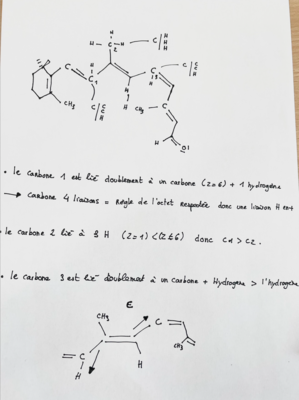 H - C - H
2
C
H
H
H
C
H
C
1
C
H
3
C
H
H
H
C
C
H
CH₃
C
C
H
CH₃
H
O
• le carbone 1 est lié doublement à un carbone (Z=6) + 1 hydrogène
→ carbone 4 liaisons = règle de l'octet respectée donc une liaison H en+
• le carbone 2 lié à 3 H (Z=1) < (Z=6) donc C1 > C2.
• le carbone 3 est lié doublement à un carbone + Hydrogène > l'hydrogène
E
CH₃
C
= C
CH₃
H
H